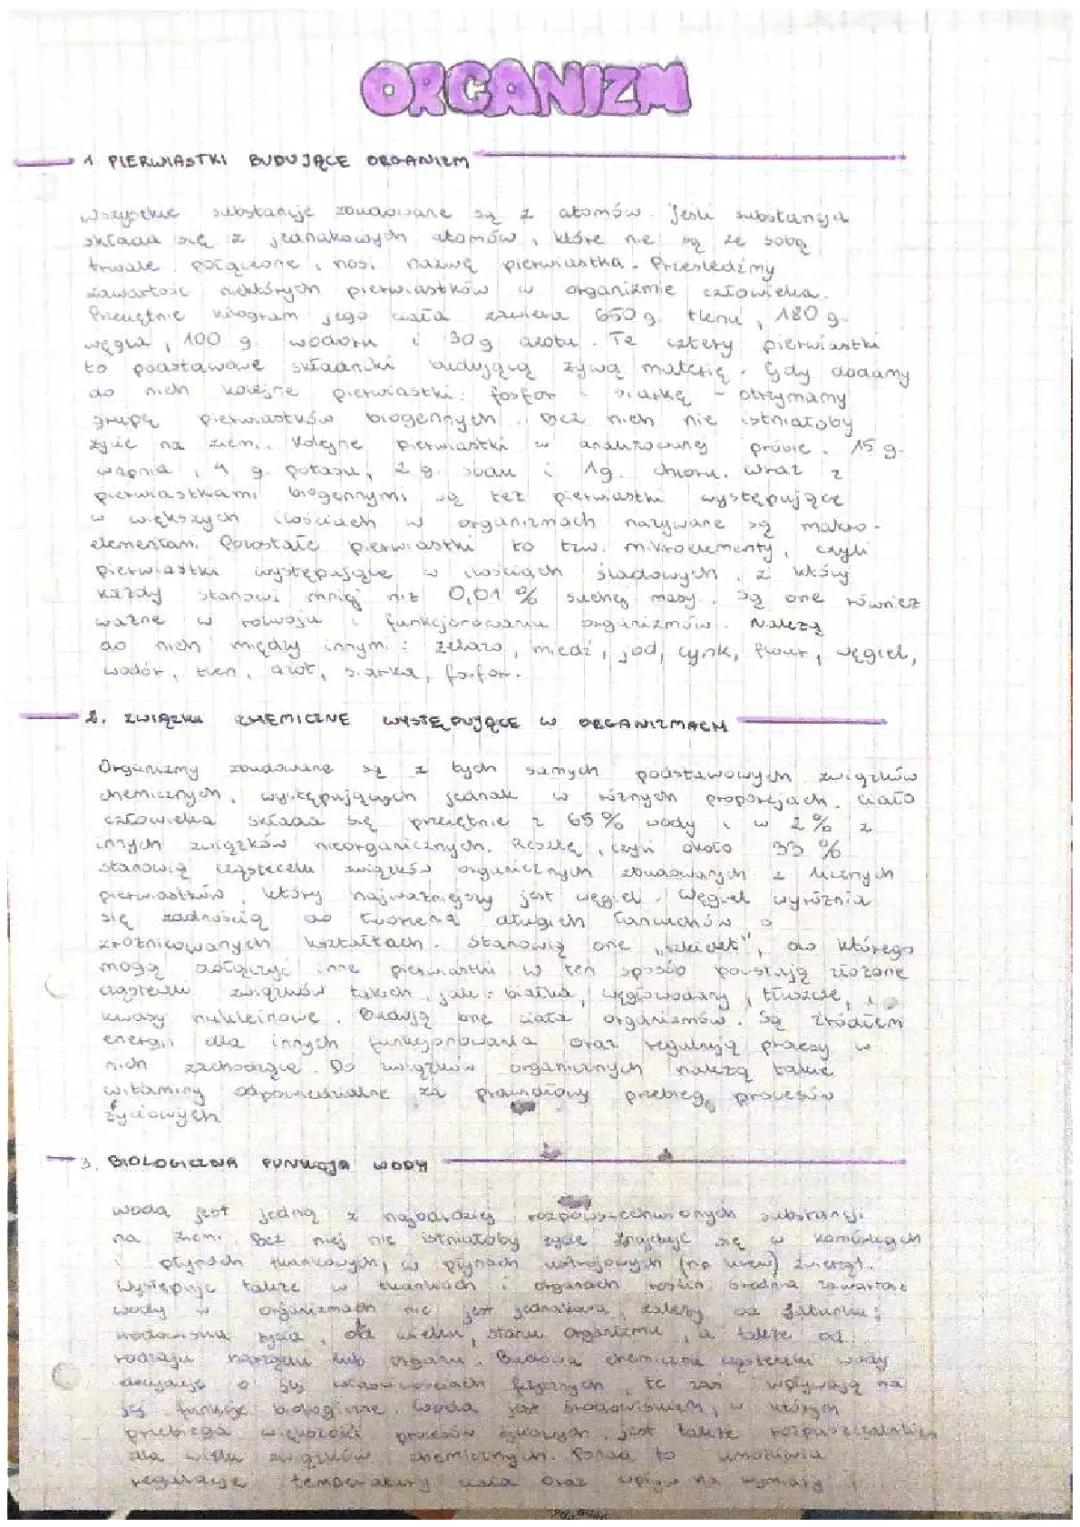 ORGANIZM
1. PIERWIASTKI BUDUJĄCE ORGANIZM
Wszystkie substancje zbudowane są z atomów. Jeśli substancja
składa się z jednakowych atomów, które nie są ze sobą
trwale połączone, nosi nazwę pierwiastka. Prześledźmy
zawartość niektórych pierwiastków w organizmie człowieka.
Przeciętnie kilogram jego ciała zawiera 650 g. tlenu, 180 g.
węgla, 100 g. wodoru i 30 g azotu. Te cztery pierwiastki
to podstawowe składniki budującą żywą materię. Gdy dodamy
do nich kolejne pierwiastki: fosfor i siarkę - otrzymamy
grupę pierwiastków biogennych. Bez nich nie istniałoby
życie na ziemi. Kolejne pierwiastki w analizowanej próbie. 15 g.
wapnia, 4 g. potasu, 2 g. sodu i 1 g. chloru. Wraz z
pierwiastkami biogennymi są też pierwiastki występujące
w większych ilościach w organizmach nazywane są makro-
elementami. Pozostałe pierwiastki to tzw. mikroelementy, czyli
pierwiastki występujące w ilościach śladowych, z który
każdy stanowi mniej niż 0,01 % suchej masy. Są one również
ważne w rozwoju i funkcjonowaniu organizmów. Należą
do nich między innymi: żelazo, miedź, jod, cynk, fluor, węgiel,
wodór, tlen, azot, siarka, fosfor.
2. ZWIĄZKI CHEMICZNE WYSTĘPUJĄCE W ORGANIZMACH
Organizmy zbudowane są z tych samych podstawowych związków
chemicznych, występujących jednak w różnych proporcjach. Ciało
człowieka składa się przeciętnie z 65 % wody i w 2 % z
innych związków nieorganicznych. Resztę, czyli około 33 %
stanowią cząsteczki związków organicznych zbudowanych z licznych
pierwiastków, który najważniejszy jest węgiel. Węgiel wyróżnia
się zdolnością do tworzenia długich łańcuchów o
zróżnicowanych kształtach. Stanowią one „szkielet", do którego
mogą dołączyć inne pierwiastki w ten sposób powstają złożone
cząsteczki związków takich, jak: białka, węglowodany, tłuszcze, i
kwasy nukleinowe. Budują one ciała organizmów. Są źródłem
energii dla innych funkcjonowania oraz regulują procesy w
nich zachodzące. Do związków organicznych należą także
witaminy odpowiedzialne za prawidłowy przebieg procesów
życiowych
3. BIOLOGICZNA FUNKCJA WODY
Woda jest jedną z najbardziej rozpowszechnionych substancji
na ziemi. Bez niej nie istniałoby życie. Znajduje się w komórkach
i płynach tkankowych, w płynach ustrojowych (np krew) zwierząt.
Występuje także w tkankach i organach roślin. Średnia zawartość
wody w organizmach nie jest jednakowa, zależy od gatunku i
środowiska życia, od wieku, stanu organizmu, a także od
rodzaju narządu lub organu. Budowa chemiczna cząsteczki wody
decyduje o jej właściwościach fizycznych, te zaś wpływają na
jej funkcje biologiczne. Woda jest środowiskiem, w którym
przebiega większość procesów życiowych, jest także rozpuszczalnikiem
dla wielu związków chemicznych. Ponad to umożliwia
regulację temperatury ciała oraz wpływ na wymiary